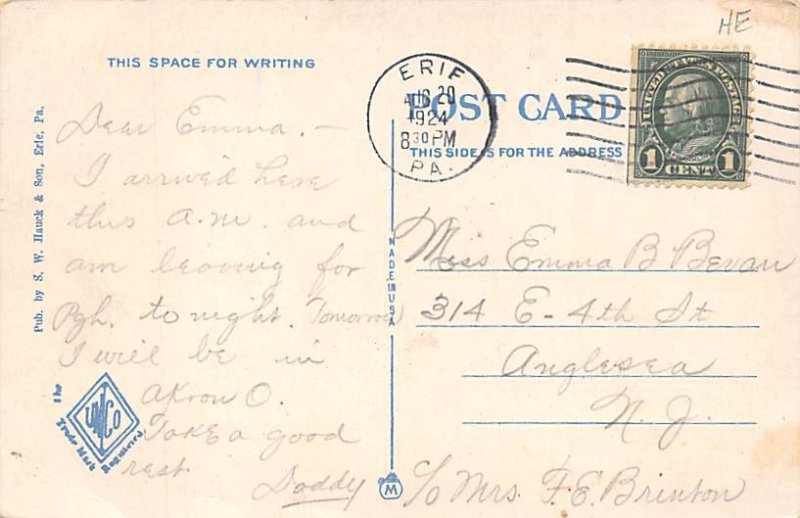 HE
THIS SPACE FOR WRITING
ERIE
AUG 20
1924
8 30 PM
PA.
POST CARD
THIS SIDE IS FOR THE ADDRESS
UNITED STATES POSTAGE
1 CENT 1
Pub. by S. W. Hauck & Son, Erie, Pa.
Dear Emma. –
I arrived here
this a.m. and
am leaving for
Pgh. to night. Tomorrow
I will be in
Akron O.
Take a good
rest.
Daddy
MADE IN USA
Miss Emma B Bevan
314 E- 4th St
Anglesea
N. J.
c/o Mrs. F. E. Brinton
The
Trade Mark
Registered.
M